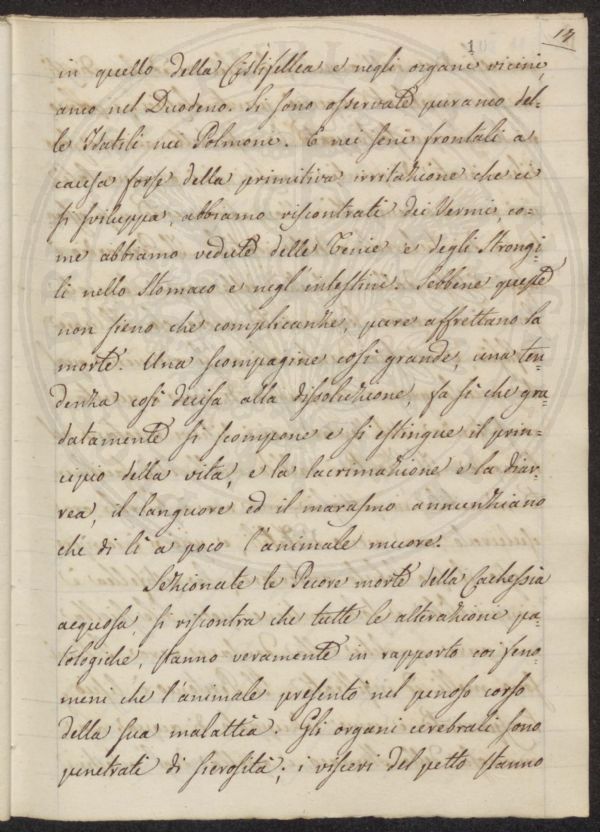 14
1
in quello della Cistifellea e negli organi vicini,
anco nel Duodeno. Si sono osservate puranco del-
le Idatili nei Polmoni. E nei seni frontali a
causa forse della primitiva irritazione che ci
si sviluppa, abbiamo riscontrati dei Vermi, co-
me abbiamo vedute delle Tenie e degli Strongi-
li nello Stomaco e negl'intestini. Sebbene queste
non sieno che complicanze, pure affrettano la
morte. Una scompagine così grande, una ten-
denza così decisa alla dissoluzione, fa sì che gra-
datamente si scompone e si estingue il prin-
cipio della vita, e la lacrimazione e la diar-
rea, il languore ed il marasmo annunziano
che di lì a poco l'animale muore.
Sezionate le Pecore morte della Cachessia
acquosa, si riscontra che tutte le alterazioni pa-
tologiche, stanno veramente in rapporto coi feno-
meni che l'animale presentò nel penoso corso
della sua malattia. Gli organi cerebrali sono
penetrati di sierosità; i visceri del petto stanno